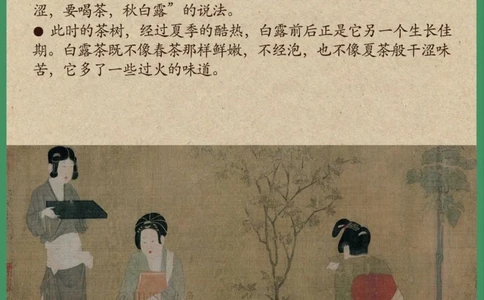 涩，要喝茶，秋白露”的说法。
● 此时的茶树，经过夏季的酷热，白露前后正是它另一个生长佳
期。白露茶既不像春茶那样鲜嫩，不经泡，也不像夏茶般干涩味
苦，它多了一些过火的味道。